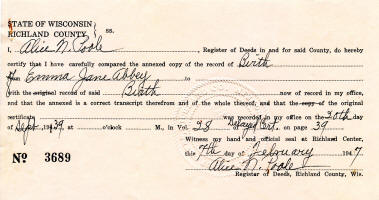 STATE OF WISCONSIN,
RICHLAND COUNTY, ss.
I, Alice N. Poole, Register of Deeds in and for said County, do hereby
certify that I have carefully compared the annexed copy of the record of Birth
from Emma Jane Abbey to
with the original record of said Birth now of record in my office,
and that the annexed is a correct transcript therefrom and of the whole thereof; and that the copy of the original
certificate was recorded in my office on the 30th day
of Sept. 1939 at o'clock M., in Vol. 28 of Delayed Cert. on page 39
Witness my hand and official seal at Richland Center,
this 7th day of February 1947
Alice N. Poole
Register of Deeds, Richland County, Wis.
No 3689